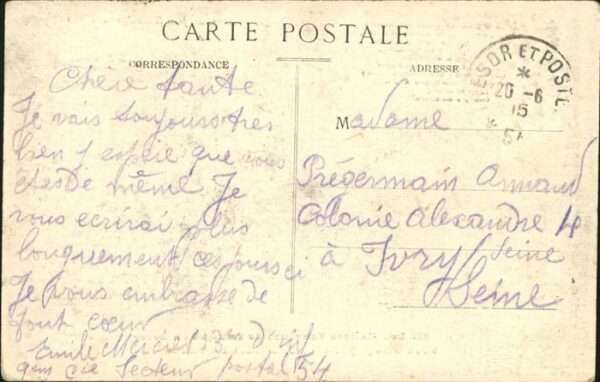 CARTE POSTALE
CORRESPONDANCE
ADRESSE
TRESOR ET POSTES
*
20-6
15
* 54
Chère tante
Je vais toujours très
bien j'espère que vous
êtes de même Je
vous écrirai plus
longuement ces jours ci
Je vous embrasse de
tout cœur
Emile Mercier 13
Cie Secteur postal 54
Madame
Prégermain Armand
Colonie Alexandre 4
à Ivry Seine
Seine